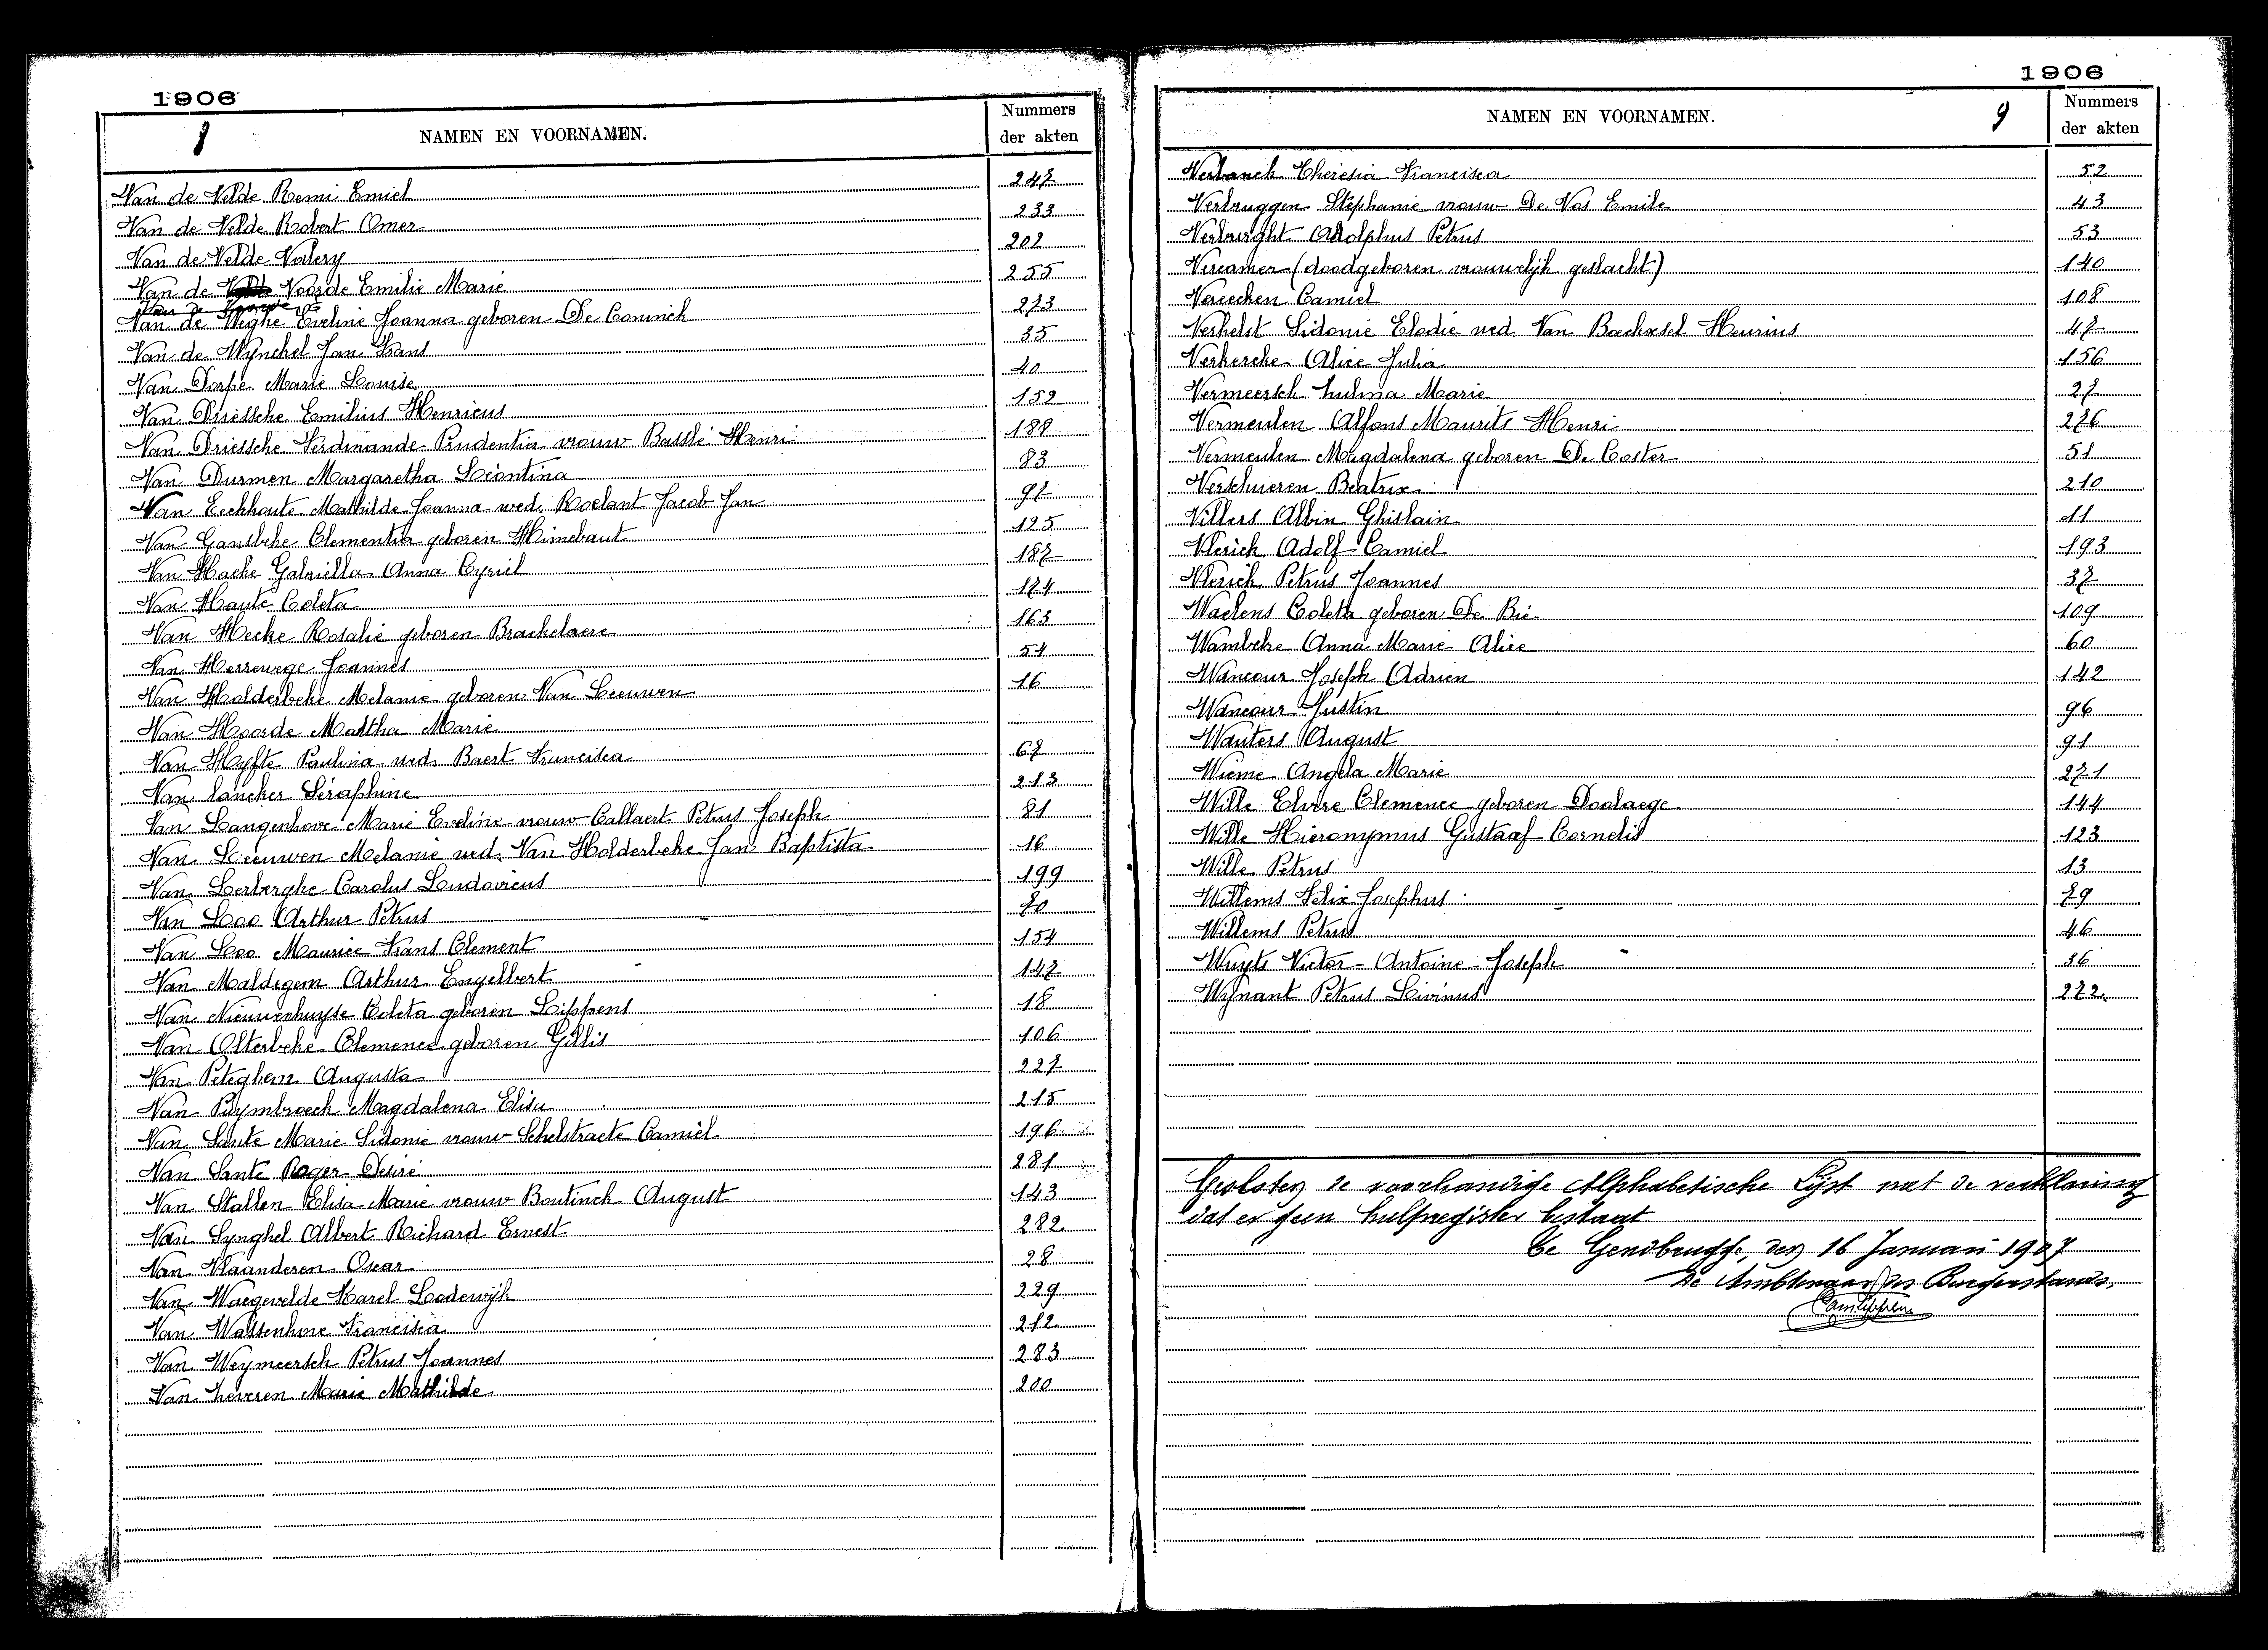 1906
8 NAMEN EN VOORNAMEN. Nummers der akten
Van de Velde Remi Emiel 247
Van de Velde Robert Omer 233
Van de Velde Valery 202
Van de Voorde Emilie Marie 255
Van de Voorde
Van de Weghe Eveline Joanna geboren De Coninck 273
Van de Wynckel Jan Frans 35
Van Dorpe Marie Louise 40
Van Driessche Emilius Henricus 152
Van Driessche Ferdinande Prudentia vrouw Basslé Henri 188
Van Durmen Margaretha Léontina 83
Van Eeckhoute Mathilde Joanna wed. Roelant Jacob Jan 97
Van Gansbeke Clementia geboren Himebaut 125
Van Hacke Gabriella Anna Cyriel 187
Van Haute Coleta 174
Van Hecke Rosalie geboren Brackelaere 163
Van Herrewege Joannes 54
Van Holderbeke Melanie geboren Van Leeuwen 16
Van Hoorde Martha Marie
Van Hyfte Paulina wed. Baert Francisca 67
Van lancker Séraphine 213
Van Langenhove Marie Eveline vrouw Callaert Petrus Joseph 81
Van Leeuwen Melanie wed. Van Holderbeke Jan Baptista 16
Van Lerberghe Carolus Ludovicus 199
Van Loo Arthur Petrus 70
Van Loo Maurice Frans Clement 154
Van Maldegem Arthur Engelbert 147
Van Nieuwenhuyse Coleta geboren Lippens 18
Van Olterbeke Clemence geboren Gillis 106
Van Peteghem Augusta 227
Van Puymbroeck Magdalena Elisa 215
Van Sante Marie Sidonie vrouw Schelstraete Camiel 196
Van Sante Roger Desiré 281
Van Stallen Elisa Marie vrouw Boutinck August 143
Van Synghel Albert Richard Ernest 282
Van Vlaanderen Oscar 28
Van Waegevelde Karel Lodewijk 229
Van Wassenhove Francisca 212
Van Weymeersch Petrus Joannes 283
Van heveren Marie Mathilde 200
1906
NAMEN EN VOORNAMEN. 9 Nummers der akten
Verbanck Theresia Francisca 52
Verbruggen Stephanie vrouw De Vos Emile 43
Verburght Adolphus Petrus 53
Vercamer (doodgeboren vrouwelijk geslacht) 140
Vereecken Camiel 108
Verhelst Sidonie Elodie wed. Van Bockxsel Henrius 47
Verkercke Alice Julia 156
Vermeersch Zulma Marie 27
Vermeulen Alfons Maurits Henri 276
Vermeulen Magdalena geboren De Coster 51
Verschueren Beatrix 210
Villers Albin Ghislain 11
Vlerick Adolf Camiel 193
Vlerick Petrus Joannes 37
Waelens Coleta geboren De Bie 109
Wambeke Anna Marie Alice 60
Wancour Joseph Adrien 142
Wancour Justin 96
Wauters August 91
Wieme Angela Marie 271
Wille Elvire Clemence geboren Doolaege 144
Wille Hieronymus Gustaaf Cornelis 123
Wille Petrus 13
Willems Felix Josephus 79
Willems Petrus 46
Wuyts Victor Antoine Joseph 36
Wynant Petrus Livinus 272
Gesloten de voorhandige Alphabetische Lijst met de verklaring
dat er geen hulpregister bestaat
Te Gendbrugge, den 16 Januari 1907
De Ambtenaar des Burgerstands,